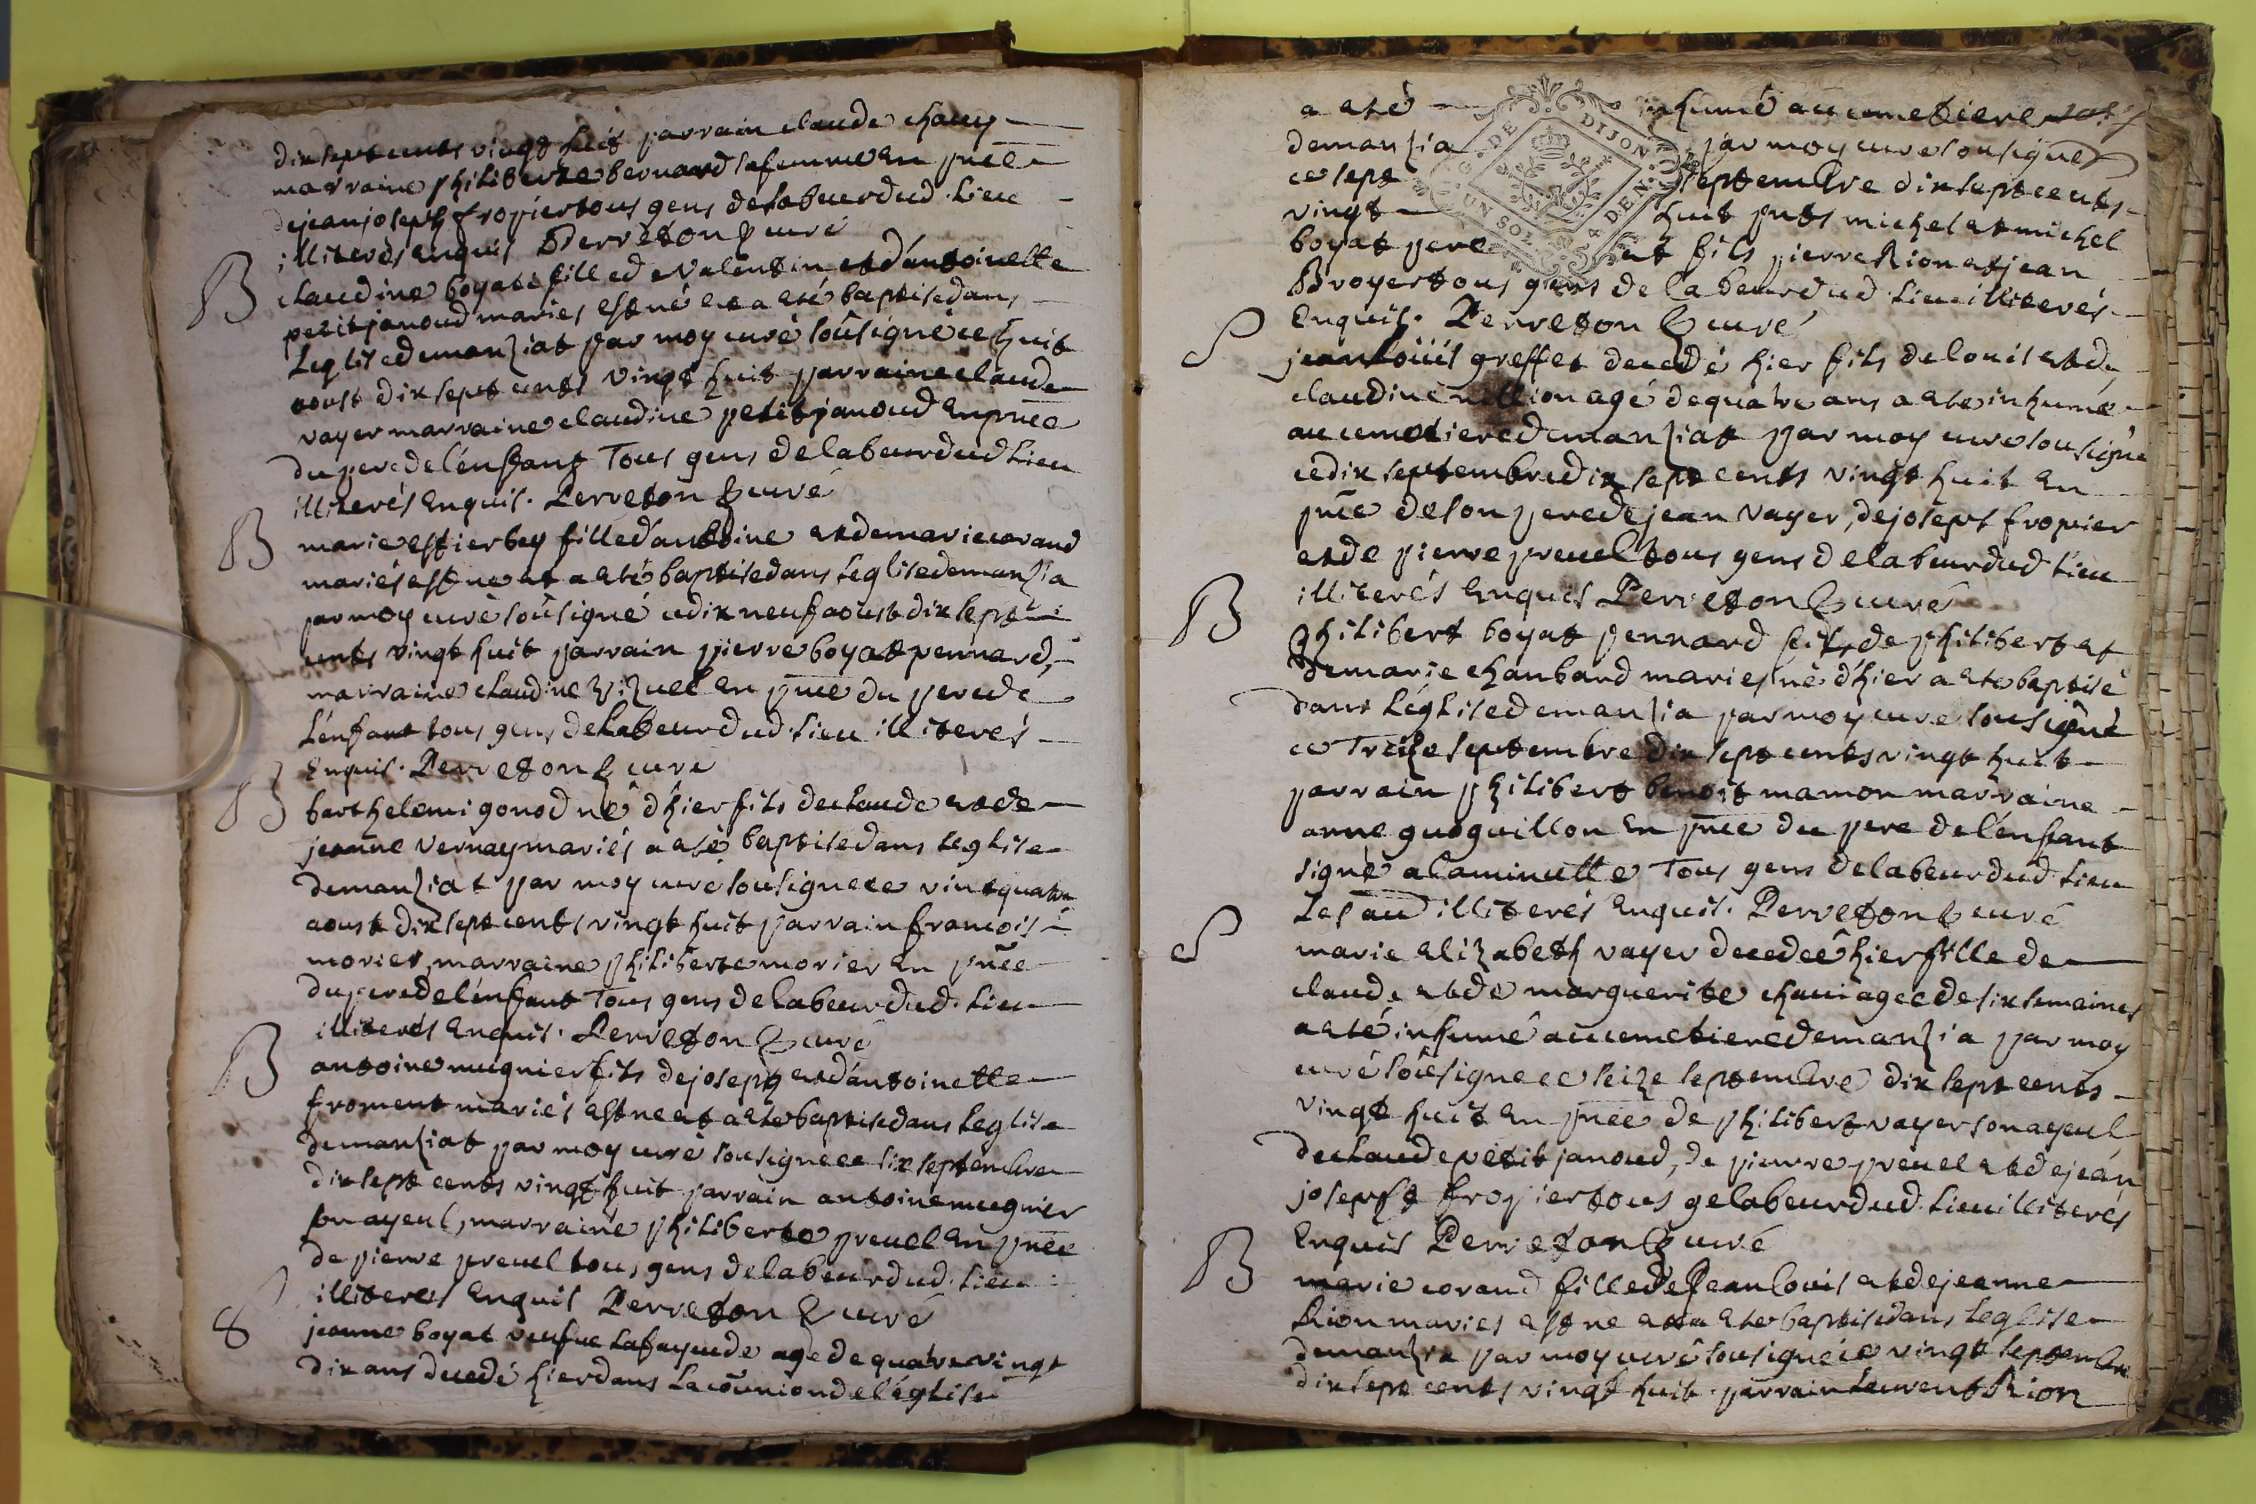 dix sept cents vingt huit parrain claude chauy
marraine philiberte bernard sa femme en pñce
de jean joseph fropier tous gens de labeur dud. lieu
illiterés enquis Perreton curé
B
claudine boyat fille de valentin et d'antoinette
petitjanoud mariés est né et a eté baptisé dans
l'eglise de manziat par moy curé soûsigné ce huit
aoust dix sept cents vingt huit parrain claude
vayer marraine claudine petitjanoud en pñce
du pere de l'enfant Tous gens de labeur dud lieu
illiterés enquis. Perreton curé
B
marie estier bey fille d'antoine et de marie corand
mariés est né et a eté baptisé dans l'eglise de manzia
par moy curé soûsigné ce dix neuf aoust dix sept
cents vingt huit parrain pierre boyat pennard,
marraine claudine en pñce du pere de
l'enfant tous gens de labeur dud. lieu illiterés
enquis. Perreton curé
B
barthelemi gonod né d'hier fils de claude et de
jeanne vernay mariés a eté baptisé dans l'eglise
de manziat par moy curé soûsigné ce vint quatre
aoust dix sept cents vingt huit parrain francois
morier, marraine philiberte morier en pñce
du pere de l'enfant Tous gens de labeur dud. lieu
illiterés enquis. Perreton curé
B
antoine mugnier fils de joseph et d'antoinette
froment mariés est né et a eté baptisé dans l'eglise
de manziat par moy curé soûsigné ce six septembre
dix sept cents vingt huit parrain antoine mugnier
son ayeul, marraine philiberte preuel en pñce
de pierre preuel tous gens de labeur dud. lieu
illiterés enquis Perreton curé
S
jeanne boyat veufue lafayude agé de quatre vingt
dix ans decedé hier dans la cõunion de l'église
a eté inhumé au cimetiere
de manzia par moy curé soûsigné
ce sept septembre dix sept cents
vingt huit pñts michel et michel
boyat pere et fils pierre Rion et jean
Broyer tous gens de labeur dud. lieu illiterés
enquis. Perreton curé
S
jean loüis greffet decedé hier fils de louis et de
claudine agé de quatre ans a eté inhumé
au cimetiere de manziat par moy curé soûsigné
ce dix septembre dix sept cents vingt huit en
pñce de son pere de jean vayer, de josept fropier
et de pierre preuel tous gens de labeur dud lieu
illiterés enquis Perreton curé
B
philibert boyat pennard fils de philibert et
de marie chanbard mariés né d'hier a eté baptisé
dans l'église de manzia par moy curé soûsigné
ce Treize septembre dix sept cents vingt huit
parrain philibert benoit mamon marraine
anne guoguillon en pñce du pere de l'enfant
signé a la minutte Tous gens de labeur dud. lieu
illiterés enquis. Perreton curé
S
marie elizabeth vayer decedeé hier fille de
claude et de marguerite chaui ageé de six semaines
a eté inhumé au cimetiere de manzia par moy
curé soûsigné ce seize septembre dix sept cents
vingt huit en pñce de philibert vayer son ayeul
de claude petit janoud, de pierre preuel et de jean
joseph fropier tous ge labeur dud. lieu illiterés
enquis Perreton curé
B
marie corand fille de Jean louis et de jeanne
Rion mariés est né et a eté baptisé dans l'eglise
de manzia par moy curé soûsigné ce vingt septembre
dix sept cents vingt huit. parrain laurent Rion
G. DE DIJON.
UN SOL 4 DEN.